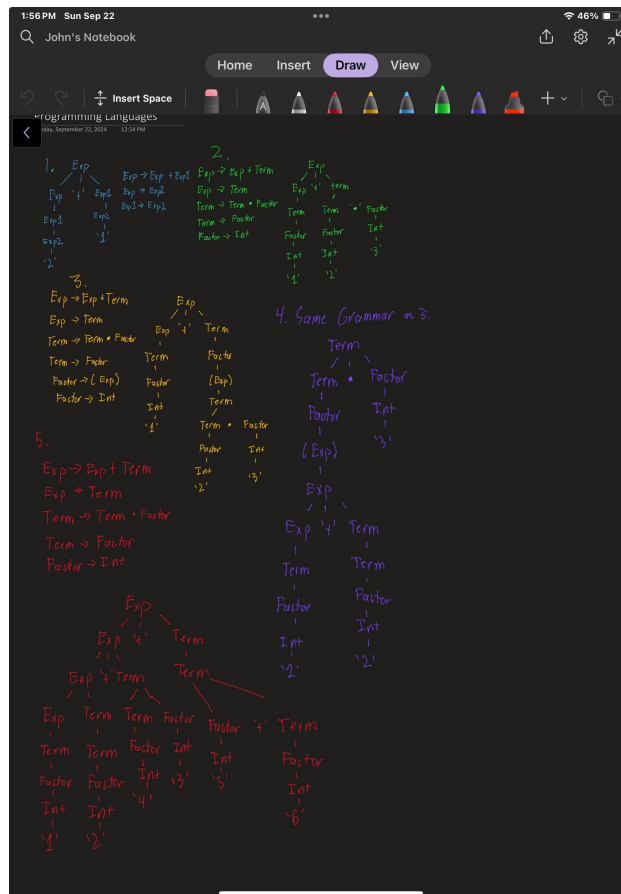 1:56 PM Sun Sep 22
46%
John's Notebook
Home Insert Draw View
Insert Space
Programming Languages
day, September 22, 2024 12:54 PM
1.
Exp
Exp '+' Exp1
Exp1 Exp2
Exp2 '1'
'2'
Exp → Exp + Exp1
Exp → Exp1
Exp1 → Exp2
2.
Exp → Exp + Term
Exp → Term
Term → Term * Factor
Term → Factor
Factor → Int
Exp
Exp '+' term
Term Term '*' Factor
Factor Factor Int
Int Int '3'
'1' '2'
3.
Exp → Exp + Term
Exp → Term
Term → Term * Factor
Term → Factor
Factor → (Exp)
Factor → Int
Exp
Exp '+' Term
Term Factor
Factor (Exp)
Int Term
'1' Term * Factor
Factor Int
Int '3'
'2'
4. Same Grammar as 3.
Term
Term * Factor
Factor Int
(Exp) '3'
Exp
Exp '+' Term
Term Term
Factor Factor
Int Int
'1' '2'
5.
Exp → Exp + Term
Exp → Term
Term → Term * Factor
Term → Factor
Factor → Int
Exp
Exp '+' Term
Exp '+' Term Term
Exp Term Term Factor Factor '+' Term
Term Term Factor Int Int Factor
Factor Factor Int '3' '5' Int
Int Int '4' '6'
'1' '2'